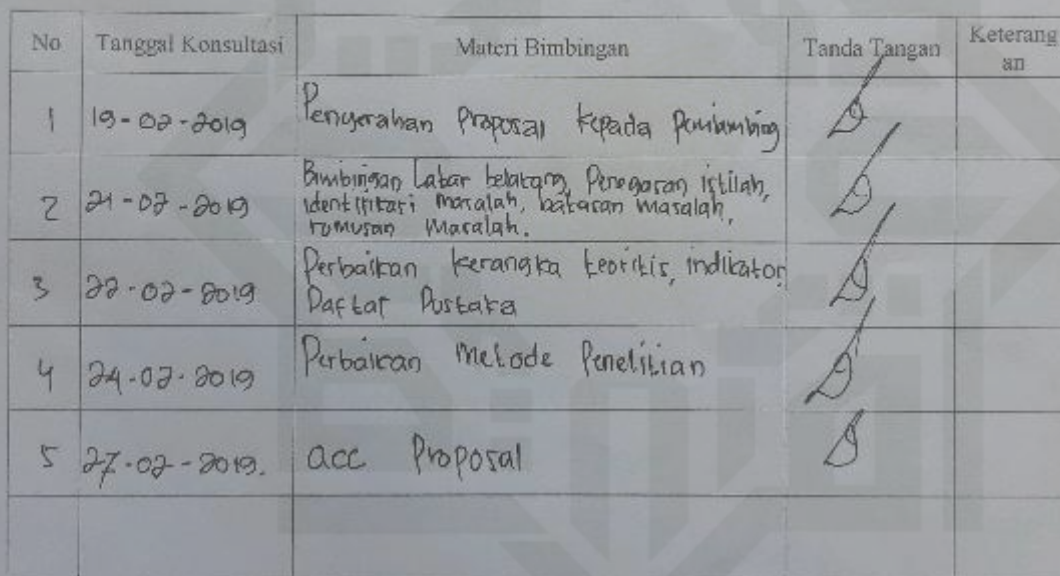 No Tanggal Konsultasi Materi Bimbingan Tanda Tangan Keterang
an
1 19-02-2019 Penyerahan Proposal kepada Pembimbing
2 21-02-2019 Bimbingan Latar belakang, Penegasan istilah,
identifikasi masalah, batasan masalah,
rumusan Masalah.
3 22-02-2019 Perbaikan kerangka teoritis, indikator,
Daftar Pustaka
4 24-02-2019 Perbaikan Metode Penelitian
5 27-02-2019. acc Proposal